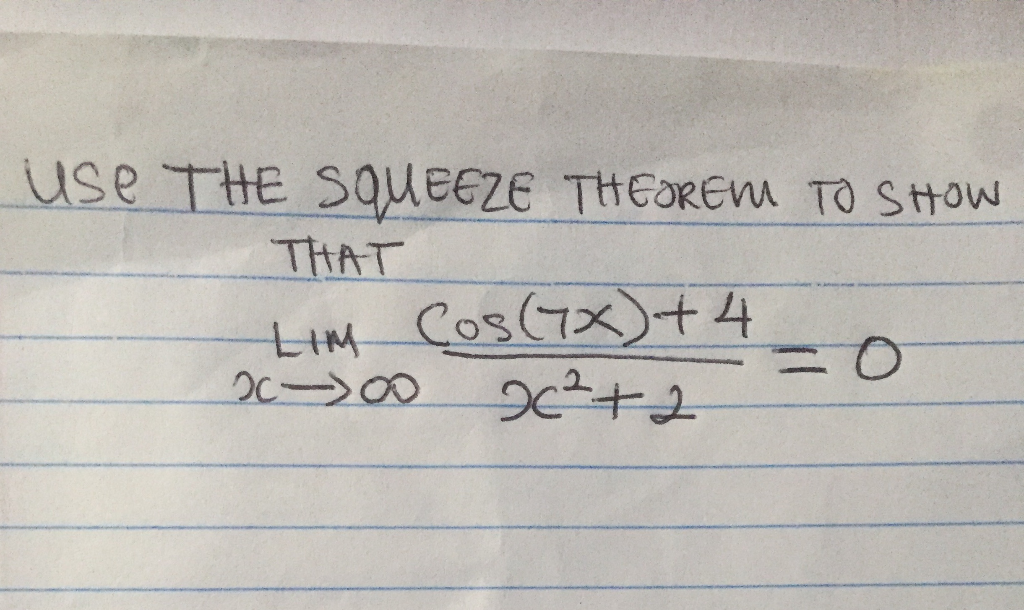 USe THE SQUEEZE THEOREM TO SHOW
THAT
LIM x→∞ Cos(7x)+4 / x²+2 = 0